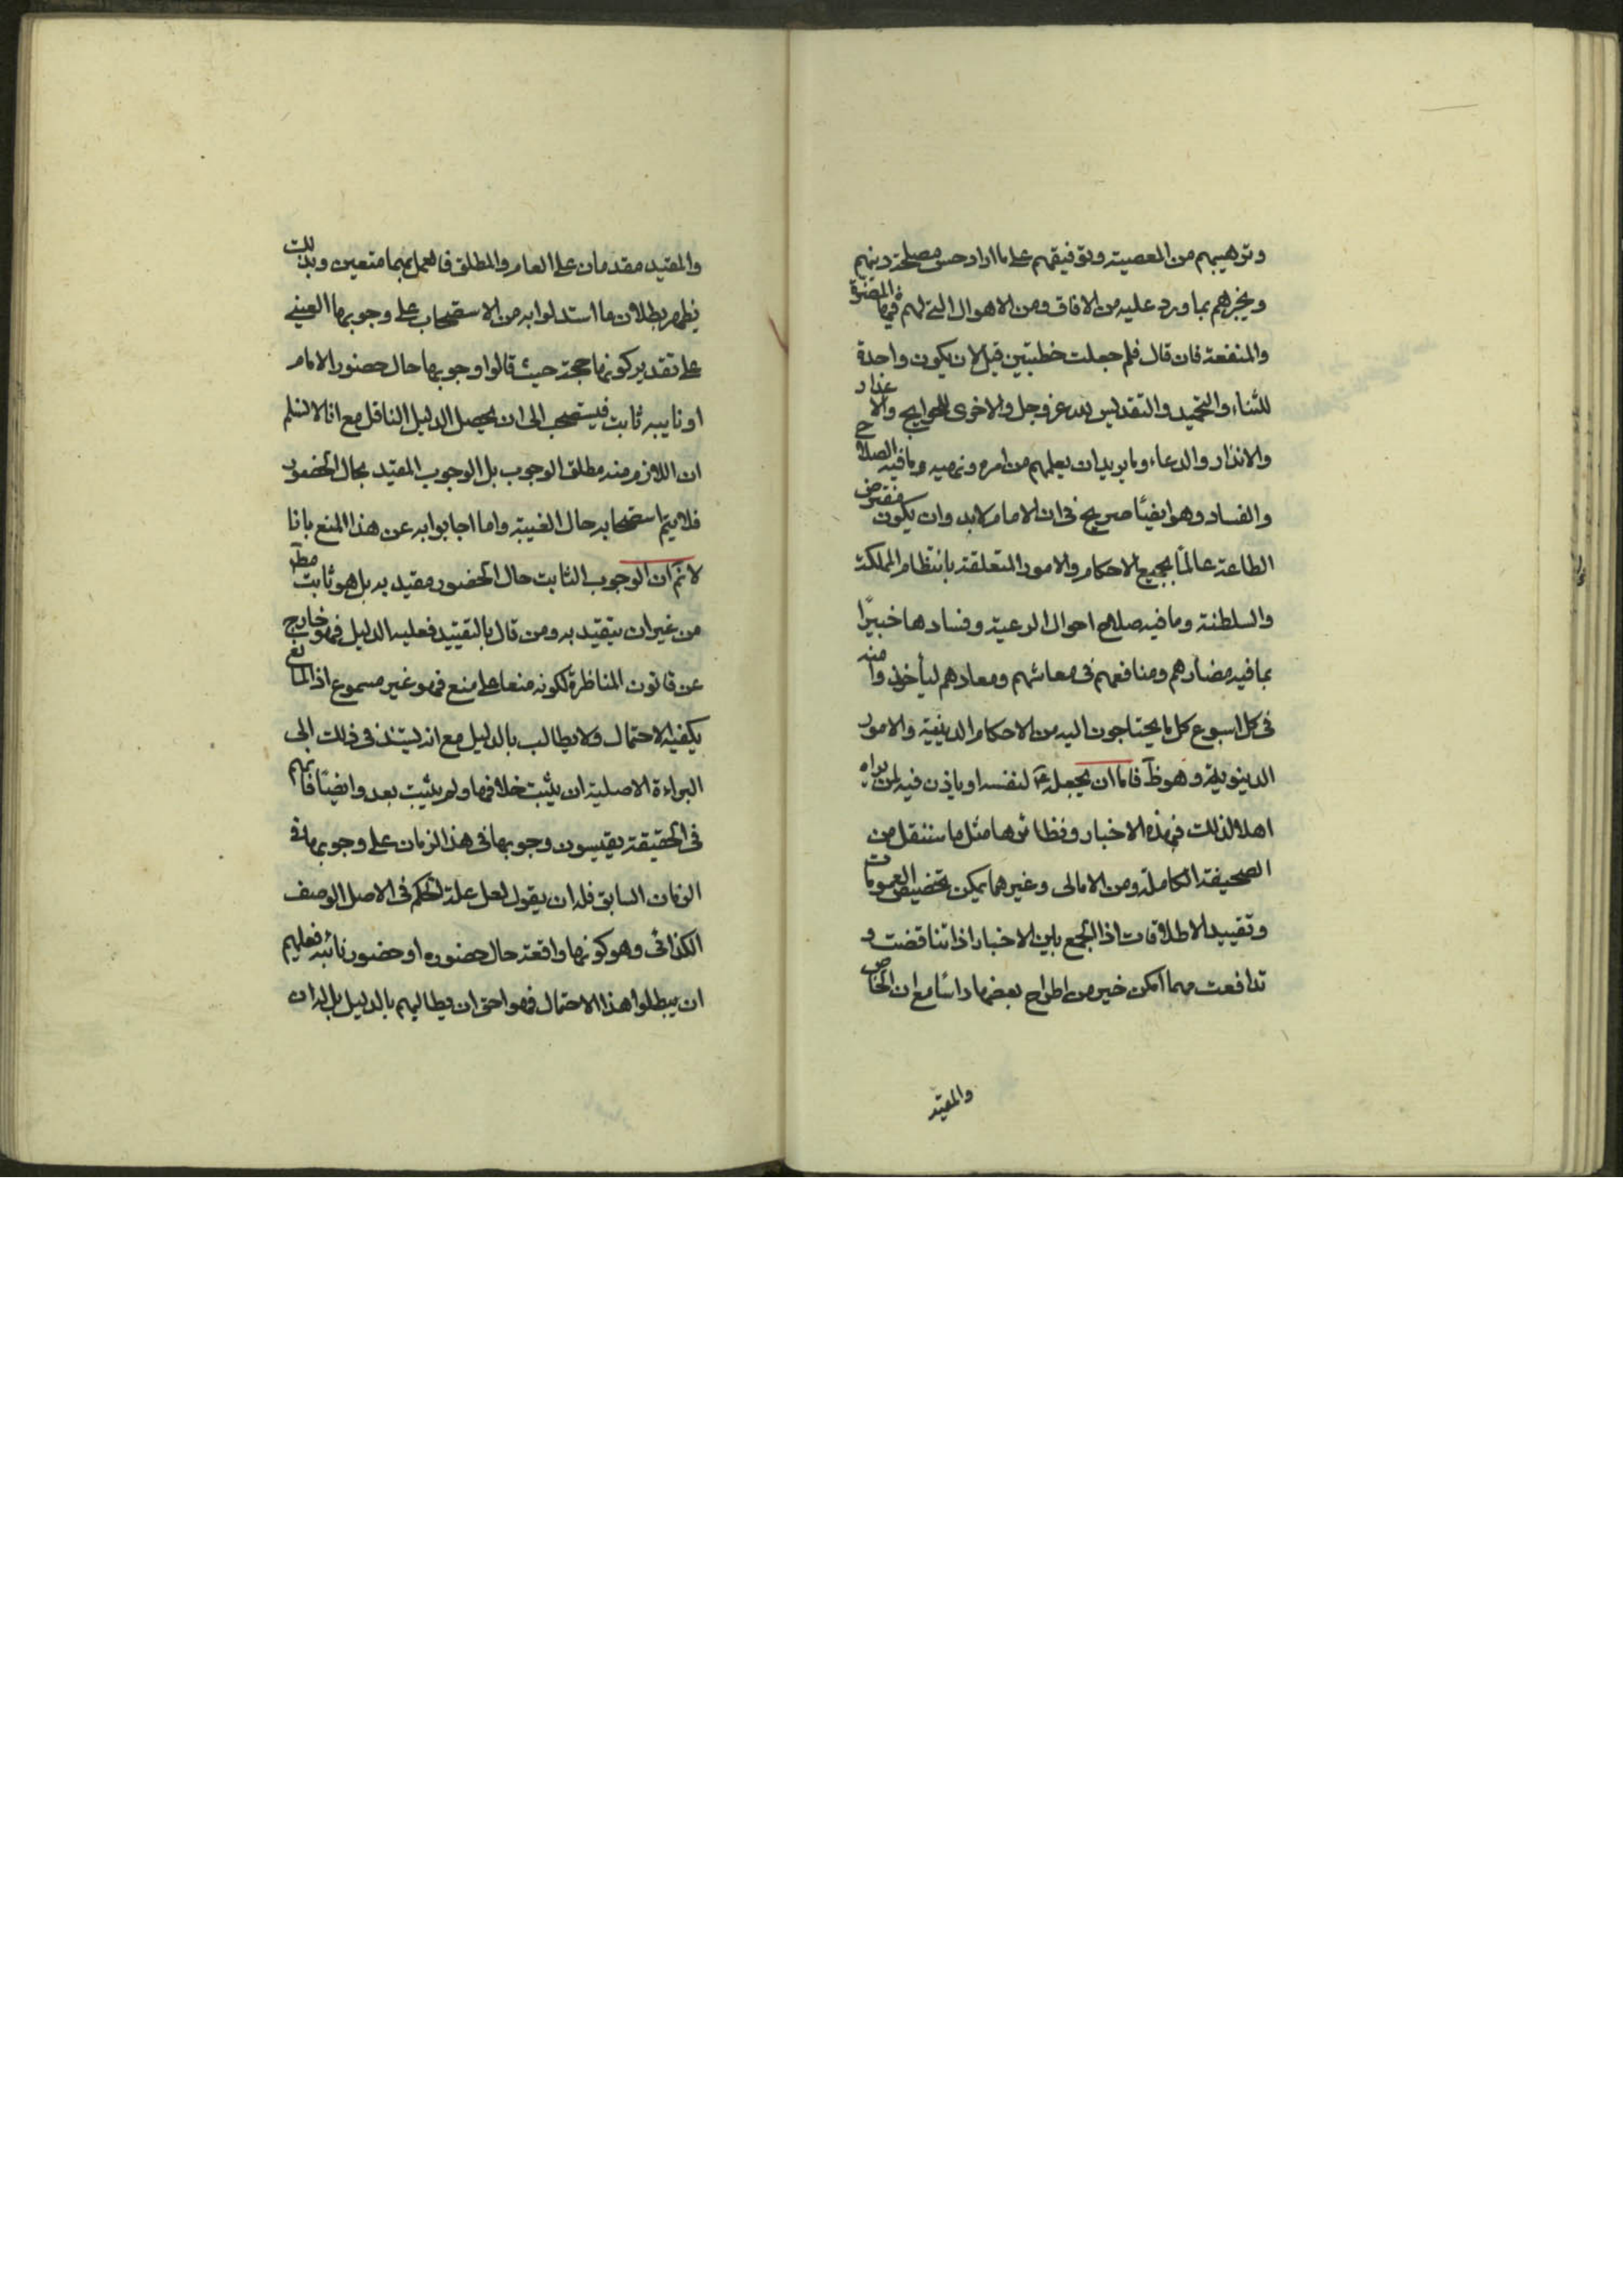 وترهيبهم من المعصية وتوفيقهم على ما اراد حسن مصلحة دينهم
ويخبرهم بما ورد عليه من الافاق ومن الاهوال التي لهم فيها المضرة
والمنفعة فان قال فلم جعلت خطبتين قيل لان يكون واحدة
للثناء والتحميد والتقديس لله عز وجل والاخرى للحوايج والاعذار
والانذار والدعاء وما يريد ان يعلمهم من امره ونهيه وما فيه الصلاح
والفساد وهو ايضًا صريح في ان الامام لابد وان يكون مفترض
الطاعة عالمًا بجميع الاحكام والامور المتعلقة بانتظام المملكة
والسلطنة وما فيه صلاح احوال الرعية وفسادها خبيرًا
بما فيه مضارهم ومنافعهم في معاشهم ومعادهم ليأخذوا منه
في كل اسبوع كل ما يحتاجون اليه من الاحكام الدينية والامور
الدينوية وهو ظ فاما ان يجعله لنفسه او ياذن فيه لمن يراه
اهلا لذلك فهذه الاخبار ونظائرها مثل ما سننقل من
الصحيفة الكاملة ومن الامالى وغيرهما يمكن تخصيص العمومات
وتقييد الاطلاقات اذ الجمع بين الاخبار اذا تناقضت و
تدافعت مهما امكن خير من اطراح بعضها داسًا مع ان الخاص
والمقيد
والمقيد مقدمان على العام والمطلق فالعمل بهما متعين وبذلك
يظهر بطلان ما استدلوا به من الاستصحاب على وجوبها العيني
على تقدير كونها حجة حيث قالوا وجوبها حال حضور الامام
او نايبه ثابت فيستصحب الى ان يحصل الدليل الناقل مع انا لا نسلم
ان اللازم منه مطلق الوجوب بل الوجوب المقيد بحال الحضور
فلا يتم استصحابه حال الغيبة واما اجابوا به عن هذا المنع بانا
لا نم ان الوجوب الثابت حال الحضور مقيد به بل هو ثابت مطلقا
من غير ان يتقيد به ومن قال بالتقييد فعليه الدليل فهو خارج
عن قانون المناظرة لكونه منعا على منع فهو غير مسموع اذ المانع
يكفيه الاحتمال ولا يطالب بالدليل مع انه يستند في ذلك الى
البراءة الاصلية ان يثبت خلافها ولم يثبت بعد وايضًا فانهم
في الحقيقة يقيسون وجوبها في هذا الزمان على وجوبها في
الزمان السابق فله ان يقول لعل علة الحكم في الاصل الوصف
الكذائي وهو كونها واقعة حال حضوره او حضور نائبه فعليهم
ان يبطلوا هذا الاحتمال فهو احق ان يطالبهم بالدليل بل له ان